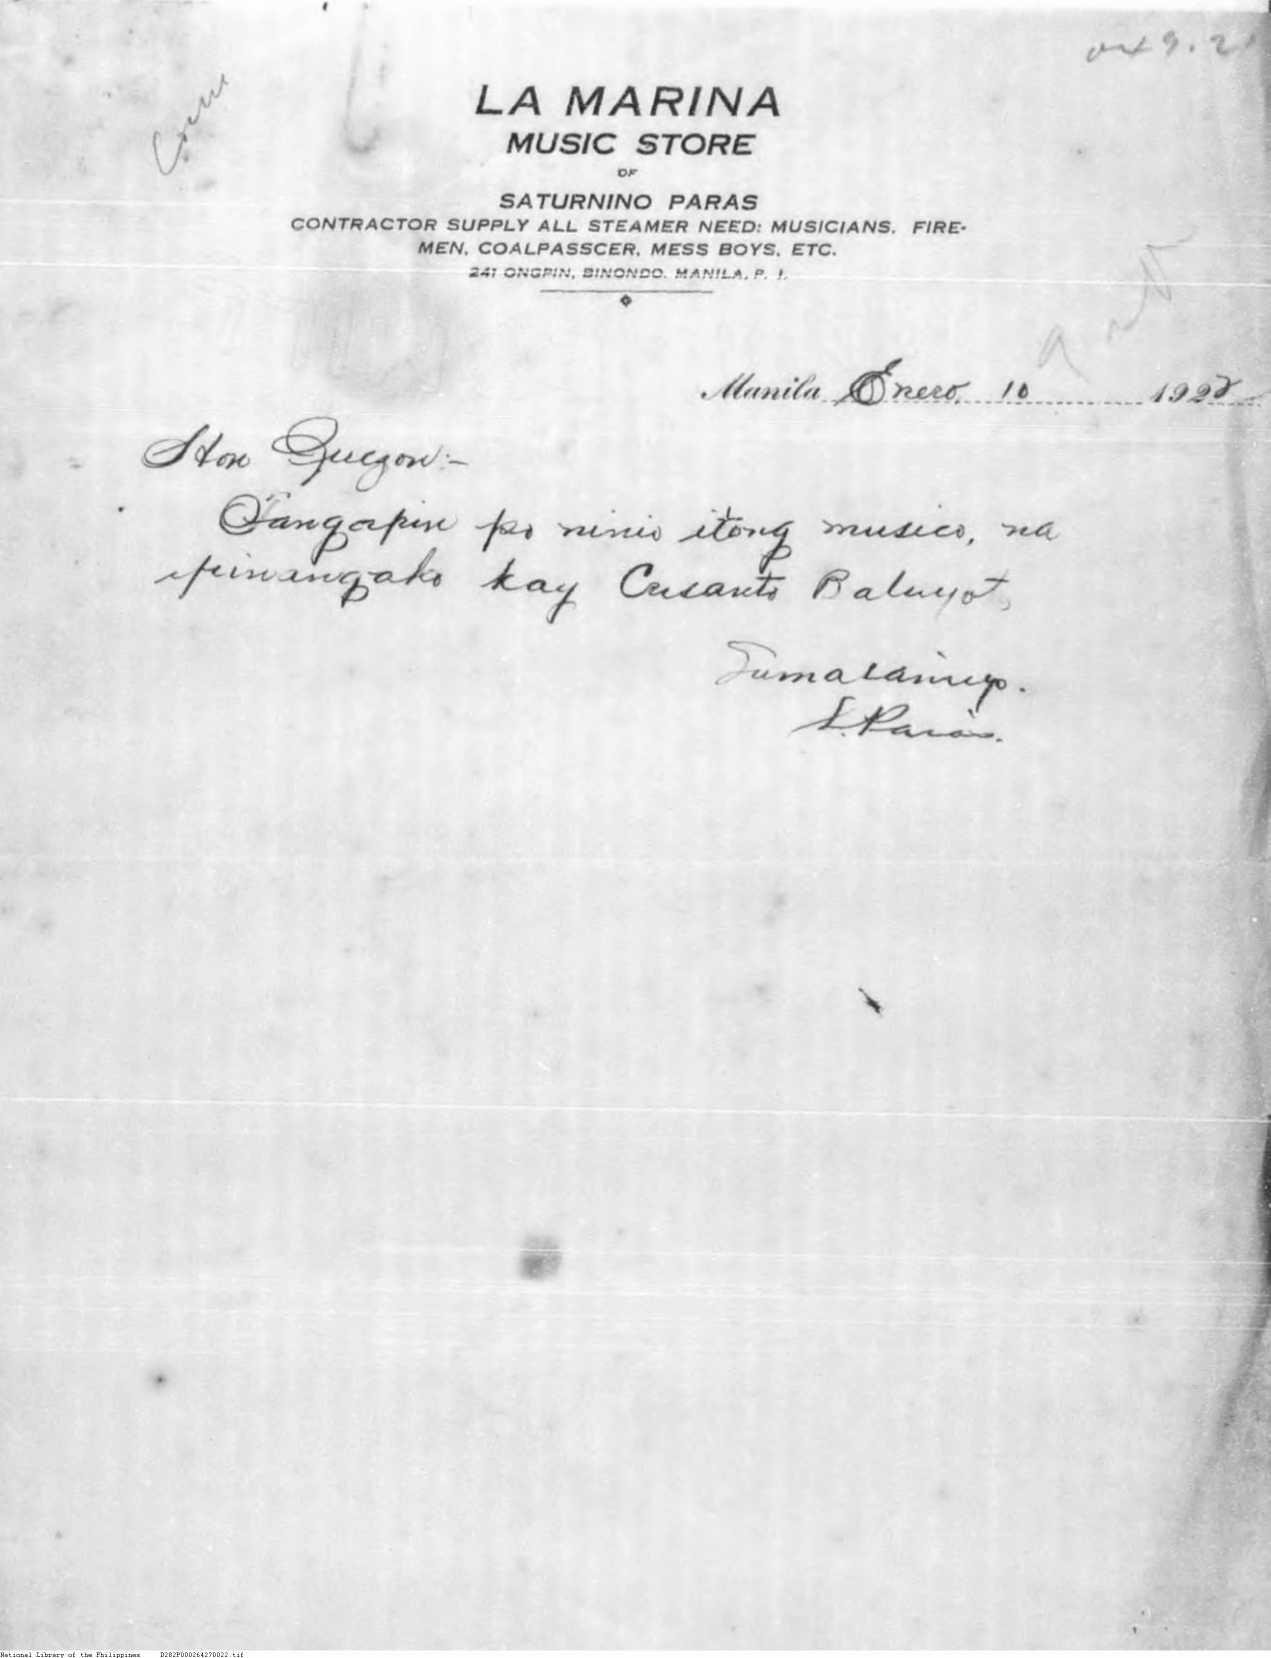 LA MARINA
MUSIC STORE
OF
SATURNINO PARAS
CONTRACTOR SUPPLY ALL STEAMER NEED: MUSICIANS, FIRE-
MEN, COALPASSCER, MESS BOYS, ETC.
241 ONGPIN, BINONDO, MANILA, P. I.
Manila Enero, 10 1922
Hon Quezon:-
Tangapin po ninio itong musico, na
ipinangako kay Crisanto Baluyot,
S. Paras.
National Library of the Philippines D282P000264270022.tif